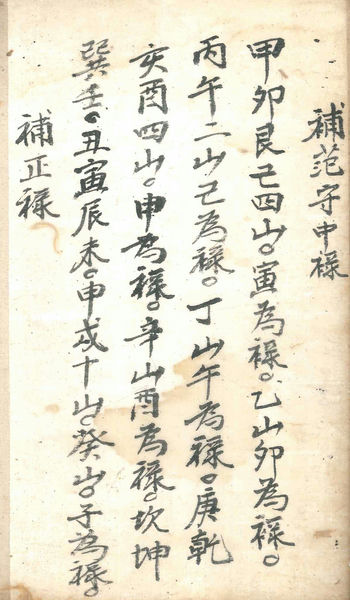 補范守中祿
甲卯艮已四山。寅為祿。乙山卯為祿。
丙午二山已為祿。丁山午為祿。庚乾
亥酉四山。申為祿。辛山酉為祿。坎坤
巽壬。丑寅辰未。申戌十山。癸山。子為祿。
補正祿